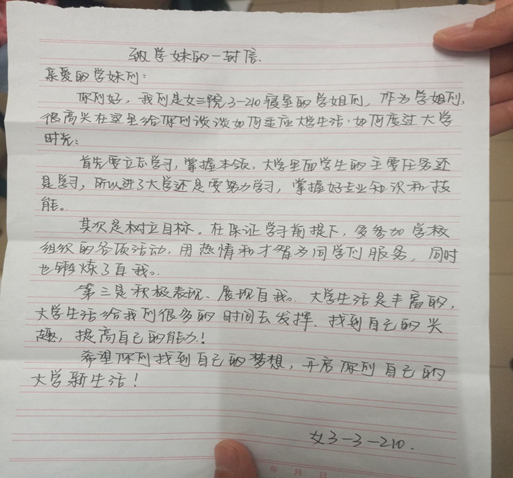 致学妹的一封信.
亲爱的学妹们:
你们好,我们是女三院3-210寝室的学姐们,作为学姐们,
很高兴在这里给你们谈谈如何适应大学生活.如何度过大学
时光:
首先要立志学习,掌握本领.大学里面学生的主要任务还
是学习,所以进了大学还是要努力学习,掌握好专业知识和技
能。
其次是树立目标.在保证学习前提下,多参加学校
组织的各项活动.用热情和才智为同学们服务,同时
也锻炼了自我。
第三是积极表现、展现自我。大学生活是丰富的,
大学生活给我们很多的时间去发挥.找到自己的兴
趣,提高自己的能力!
希望你们找到自己的梦想,开启你们自己的
大学新生活!
女3-3-210.
年 月 日